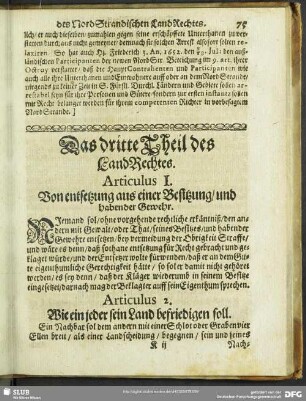 des NordStrandischen LandRechtes. 75
lich/ er auch dieselben zumahlen gegen seine erschöpffte Unterthanen zu ver-
statten durch aus nicht gemeynet dennoch sie solchen Arrest alsofort sollen re-
laxiren. So hat auch Hz. Friederich 3. An. 1652. den Jul: den auß-
ländischen Participanten der newen Nord Str. Betrichung im 9. art. ihrer
Octroy verstattet/ daß die HauptParticipanten wie
auch alle ihre Unterthanen und Einwohnere auff oder an dem Nord Strande/
nirgends zu keiner Zeit in S. Fürstl. Durchl. Ländern und Gebiete sollen ar-
restabel seyn für ihre Personen und Gütere sondern zur ersten instantz sollen
mit Recht belanget werden für ihrem competenten Richter in vorbesagtem
Nord Strande.]
Das dritte Theil des
LandRechtes.
Articulus I.
Von entsetzung aus einer Besitzung/ und
habender Gewehr.
Niemand sol/ ohne vorgehende rechtliche erkäntniß/ den an-
dern mit Gewalt/ oder That/ seines Besitzes und habender
Gewehre entsetzen/ bey vermeidung der Obrigkeit Straffe/
und wäre es denn/ daß sothane entsetzung für Recht gebracht und ge-
klaget würde/ und der Entsetzer wolte fürwenden/ daß er an dem Gu-
te eigenthumliche Gerechtigkeit hätte/ so sol er damit nicht gehöret
werden/ es sey denn/ daß der Kläger wiederumb in seinem Besitze
eingesetzet/ darnach mag der Beklagter auff sein Eigenthum sprechen.
Articulus 2.
Wie ein jeder sein Land befriedigen soll.
Ein Nachbar sol dem andern mit einer Schlot oder Graben vier
Ellen breit/ als einer Landscheidung/ begegnen/ sein und seines
K ij Nach-
SLUB